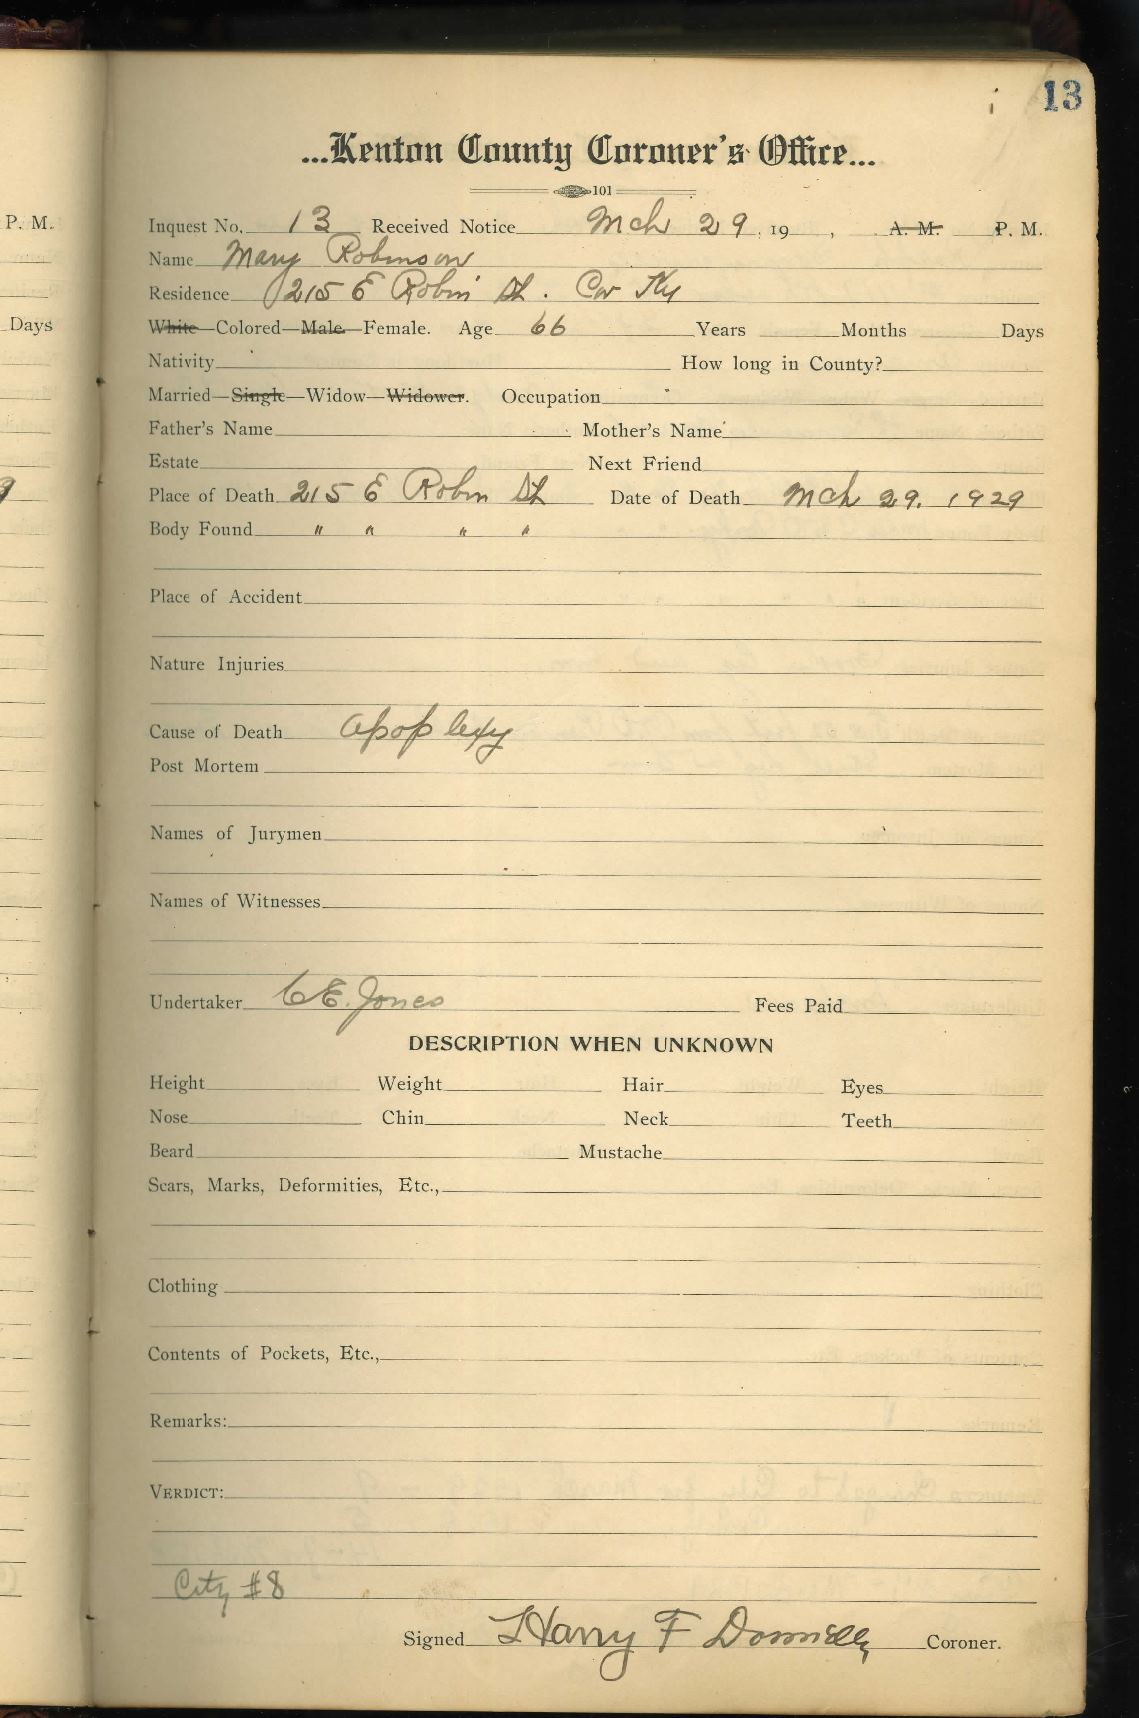 13
...Kenton County Coroner's Office...
101
P. M.
Inquest No. 13 Received Notice Mch 29, 19 , A. M. P. M.
Name Mary Robinson
Residence 215 E Robin St. Cov Ky
Days
White—Colored—Male—Female. Age 66 Years Months Days
Nativity How long in County?
Married—Single—Widow—Widower. Occupation
Father's Name Mother's Name
Estate Next Friend
Place of Death 215 E Robin St Date of Death Mch 29. 1929
Body Found " " " "
Place of Accident
Nature Injuries
Cause of Death apoplexy
Post Mortem
Names of Jurymen
Names of Witnesses
Undertaker C E. Jones Fees Paid
DESCRIPTION WHEN UNKNOWN
Height Weight Hair Eyes
Nose Chin Neck Teeth
Beard Mustache
Scars, Marks, Deformities, Etc.,
Clothing
Contents of Pockets, Etc.,
Remarks:
VERDICT:
City #8
Signed Harry F Donnelly Coroner.